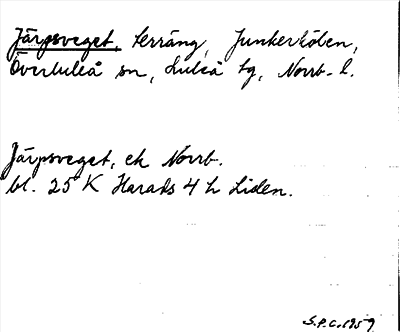 Järpsveget, terräng, Junkerhöben,
Överluleå sn, Luleå tg, Norrb. l.
Järpsveget, ek Norrb.
bl. 25 K Harads 4 h Liden.
S.P.C. 1959